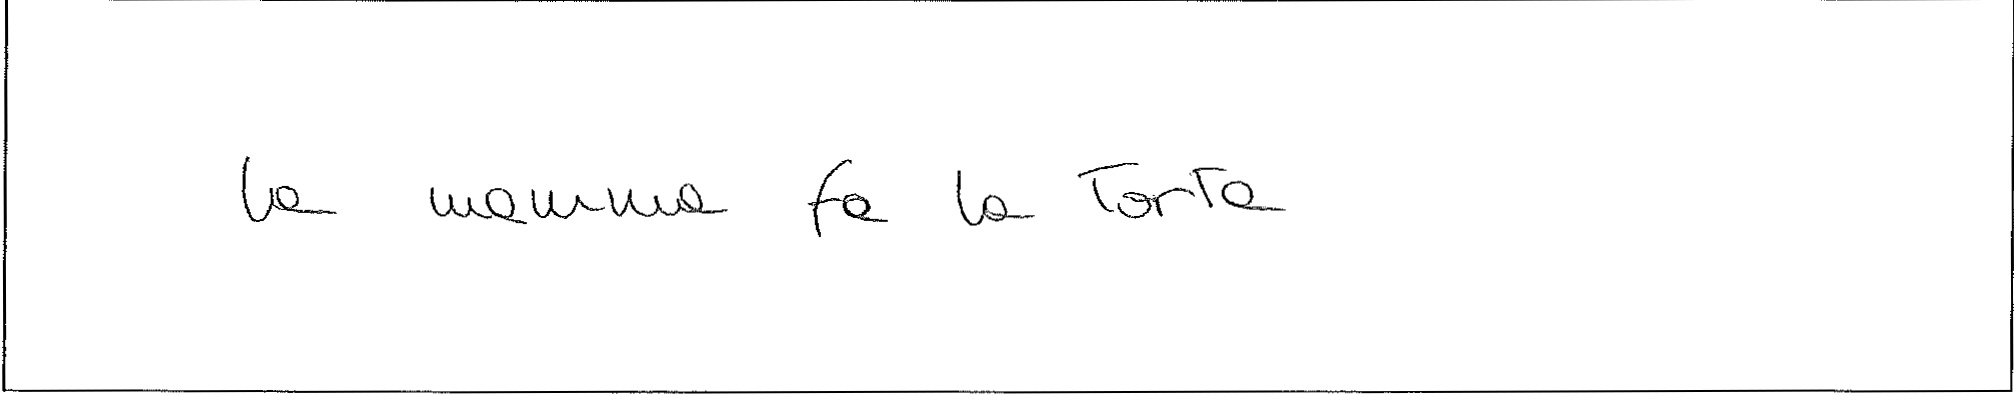 la mamma fa la torta